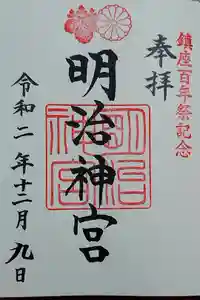 鎮座百年祭記念
奉拝
明治神宮
明治神宮
令和二年十二月九日